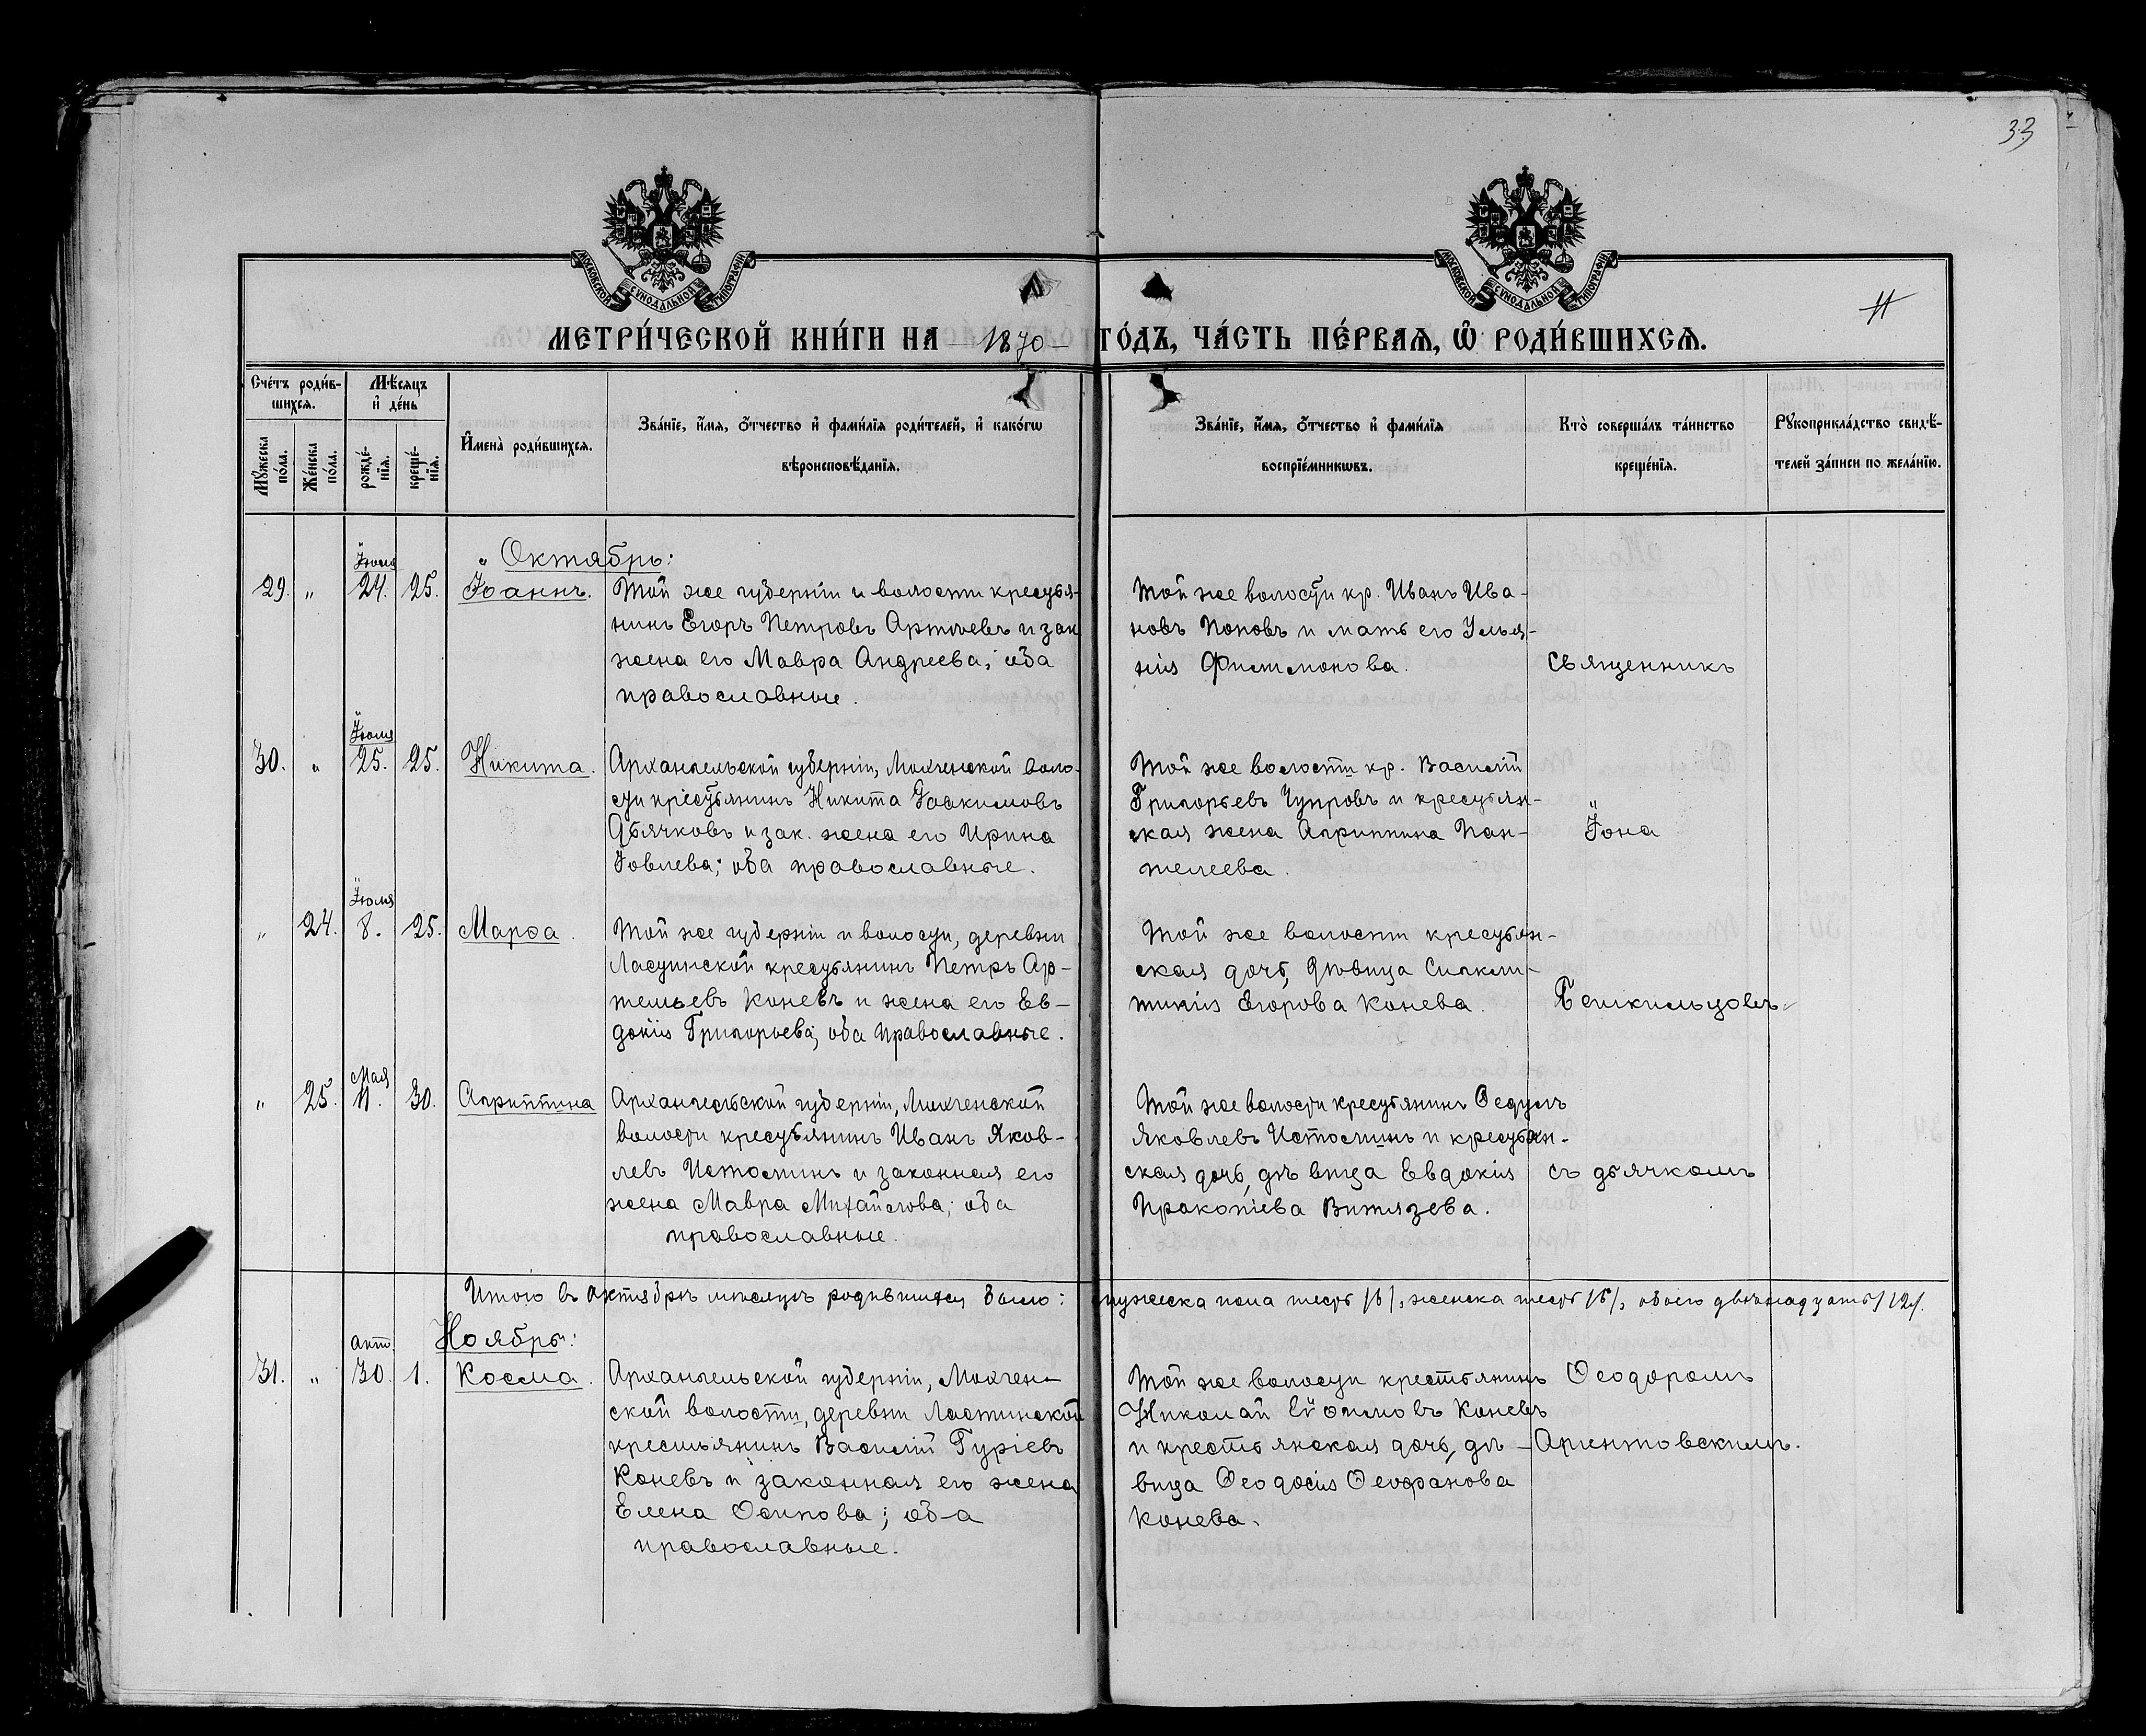 33
МОСКОВСКОЙ СѴНОДАЛЬНОЙ ТИПОГРАФІИ
МОСКОВСКОЙ СѴНОДАЛЬНОЙ ТИПОГРАФІИ
11
МЕТРИ́ЧЕСКОЙ КНИ́ГИ НА 1870 ГО́ДЪ, ЧА́СТЬ ПЕ́РВАѦ, Ѽ РОДИ́ВШИХСѦ.
Сче́тъ роди́в-
шихсѧ.
Мѣ́сѧцъ
и҆ де́нь
Мꙋ́жеска
по́ла.
Же́нска
по́ла.
рожде́-
нїѧ.
креще́-
нїѧ.
И҆мена̀ роди́вшихсѧ.
Зва́нїе, и҆́мѧ, ѻ҆́тчество и҆ фами́лїѧ роди́телей, и҆ како́гѡ
вѣроисповѣ́данїѧ.
Зва́нїе, и҆́мѧ, ѻ҆́тчество и҆ фами́лїѧ
воспрїе́мникѡвъ.
Кто̀ соверша́лъ та́инство
креще́нїѧ.
Рꙋкоприкла́дство свидѣ́-
телей за́писи по жела́нїю.
„ Октябрь:
Іюля
29. „ 24. 25. Іоаннъ.
Той же губерніи и волости крестья-
нинъ Егоръ Петровъ Артѣевъ и зак.
жена его Мавра Андреева; оба
православные.
Той же волости кр. Иванъ Ива-
новъ Поповъ и мать его Улья-
нія Филимонова.
Священникъ
Іюля
30. „ 25. 25. Никита.
Архангельской губерніи, Мохченской воло-
сти крістьянинъ Никита Іоакимовъ
Дьячковъ и зак. жена его Ирина
Іовлева; оба православные.
Той же волости кр. Василій
Григорьевъ Чупровъ и крестьян-
ская жена Агриппина Пан-
телеева.
Іона
Іюля
„ 24. 8. 25. Марѳа.
Той же губерніи и волости, деревни
Ластинской крестьянинъ Петръ Ар-
темьевъ Коневъ и жена его Ев-
докія Григорьева; оба православные.
Той же волости крестьян-
ская дочь, дѣвица Сигкли-
тикія Егорова Конева.
Мая
„ 25. 11. 30. Агриппина
Архангельской губерніи, Мохченской
волости крестьянинъ Иванъ Яков-
левъ Истоминъ и законная его
жена Мавра Михайлова; оба
православные.
Той же волости крестьянинъ Ѳедулъ
Яковлевъ Истоминъ и крестьян-
ская дочь, дѣвица Евдокія
Прокопіева Витязева.
съ дьячкомъ
Итого въ октябрѣ мѣсяцѣ родившихся было: мужеска пола шесть /6/, женска шесть /6/, обоего двѣнадцать /12/.
Ноябрь:
Окт.
31. „ 30. 1. Косма.
Архангельской губерніи, Мохчен-
ской волости, деревни Ластинской
крестьянинъ Василій Гуріевъ
Коневъ и законная его жена
Елена Осипова; оба
православные.
Той же волости крестьянинъ
Николай Коневъ
и крестьянская дочь, дѣ-
вица Ѳеодосія Ѳеофанова
Конева.
Ѳеодоромъ
Аринтовскимъ.